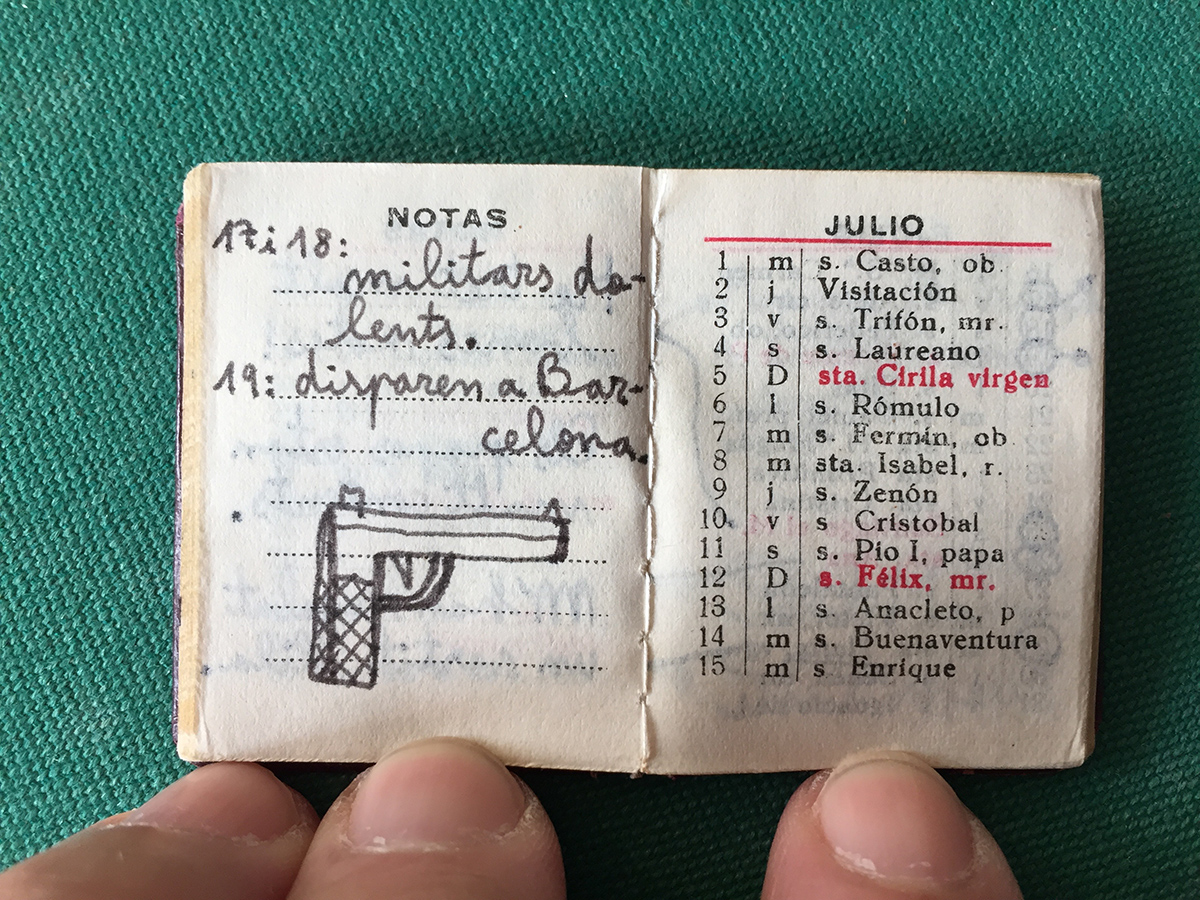 NOTAS
17 i 18:
militars do-
lents.
19: disparen a Bar-
celona.
JULIO
1 m s. Casto, ob.
2 j Visitación
3 v s. Trifón, mr.
4 s s. Laureano
5 D sta. Cirila virgen
6 l s. Rómulo
7 m s. Fermín, ob
8 m sta. Isabel, r.
9 j s. Zenón
10 v s Cristobal
11 s s. Pio I, papa
12 D s. Félix, mr.
13 l s. Anacleto, p
14 m s. Buenaventura
15 m s Enrique